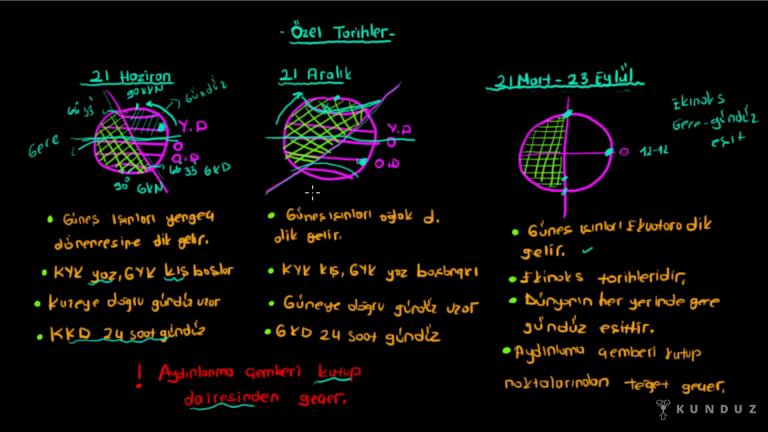 - Özel Tarihler -
21 Haziran
90 KYN
Gündüz
66 33
Gece
Y.D
O
O.D
66 33 GKD
90° GKN
• Güneş ışınları yengeç
dönencesine dik gelir.
• KYK yaz, GYK kış başlar
• Kuzeye doğru gündüz uzar
• KKD 24 saat gündüz
21 Aralık
Y.D
O
O.D
• Güneş ışınları oğlak d.
dik gelir.
• KYK kış, GYK yaz başlangıcı
• Güneye doğru gündüz uzar
• GKD 24 saat gündüz
! Aydınlanma çemberi kutup
dairesinden geçer.
21 Mart - 23 Eylül
Ekinoks
Gece-gündüz
eşit
O 12-12
• Güneş ışınları Ekvatora dik
gelir.
• Ekinoks tarihleridir,
• Dünyanın her yerinde gece
gündüz eşittir.
• Aydınlama çemberi kutup
noktalarından teğet geçer.
KUNDUZ